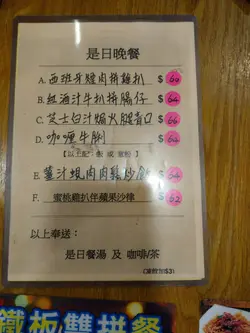 是日晚餐
A. 西班牙燴肉拼雞扒 $64
B. 紅酒汁牛扒拼腸仔 $64
C. 芝士白汁焗火腿青口 $66
D. 咖喱牛脷 $64
【以上配: 飯 或 意粉】
E. 薑汁蜆肉肉鬆炒飯 $64
F. 蜜桃雞扒伴蘋果沙律 $62
以上奉送:
是日餐湯 及 咖啡/茶
(凍飲加$3)
鐵板雙拼餐